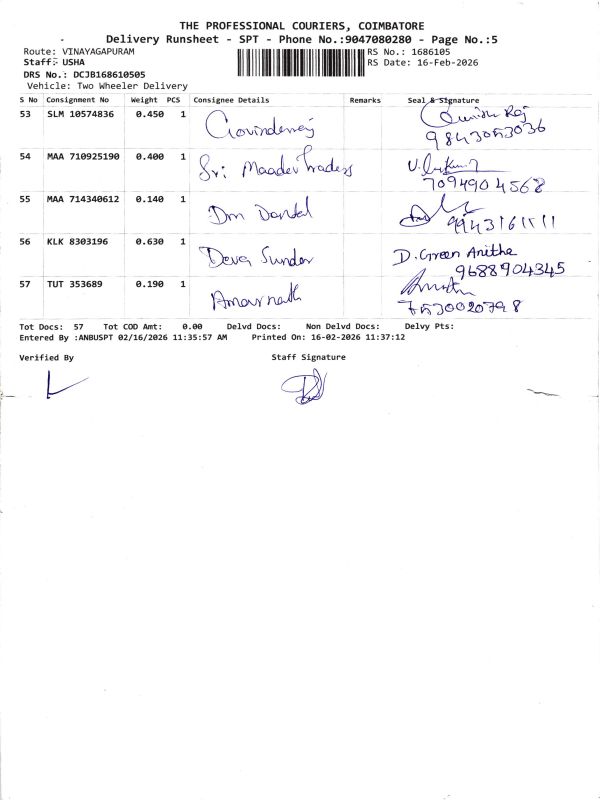 THE PROFESSIONAL COURIERS, COIMBATORE
Delivery Runsheet - SPT - Phone No.:9047080280 - Page No.:5
Route: VINAYAGAPURAM RS No.: 1686105
Staff:- USHA RS Date: 16-Feb-2026
DRS No.: DCJB168610505
Vehicle: Two Wheeler Delivery
S No Consignment No Weight PCS Consignee Details Remarks Seal & Signature
53 SLM 10574836 0.450 1 Govinderaj
9843053036
54 MAA 710925190 0.400 1 Sri Maadev Traders
7094904568
55 MAA 714340612 0.140 1 Dm Dental
9943161111
56 KLK 8303196 0.630 1 Deva Sunder D. Green Anitha
9688904345
57 TUT 353689 0.190 1 Amarnath
Tot Docs: 57 Tot COD Amt: 0.00 Delvd Docs: Non Delvd Docs: Delvy Pts:
Entered By :ANBUSPT 02/16/2026 11:35:57 AM Printed On: 16-02-2026 11:37:12
Verified By Staff Signature